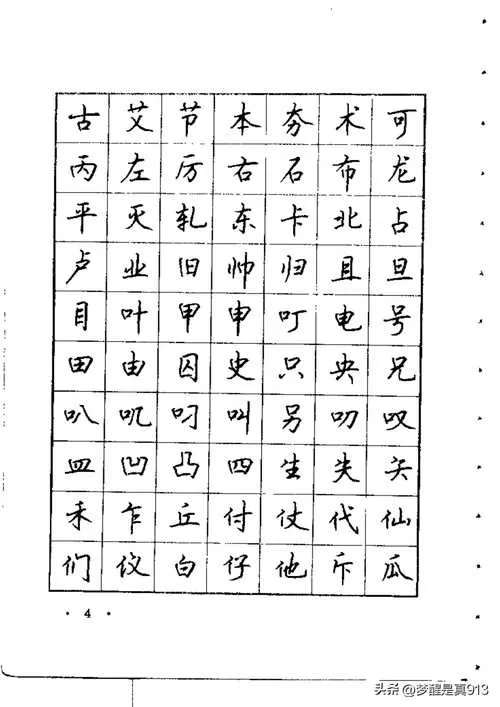 古 艾 节 本 夯 术 可
丙 左 厉 右 石 布 龙
平 灭 轧 东 卡 北 占
卢 业 旧 帅 归 且 旦
目 叶 甲 申 叮 电 号
田 由 囚 史 只 央 兄
叭 叽 叼 叫 另 叨 叹
皿 凹 凸 四 生 失 矢
禾 乍 丘 付 仗 代 仙
们 仪 白 仔 他 斥 瓜
· 4 ·
头条 @梦醒是真913